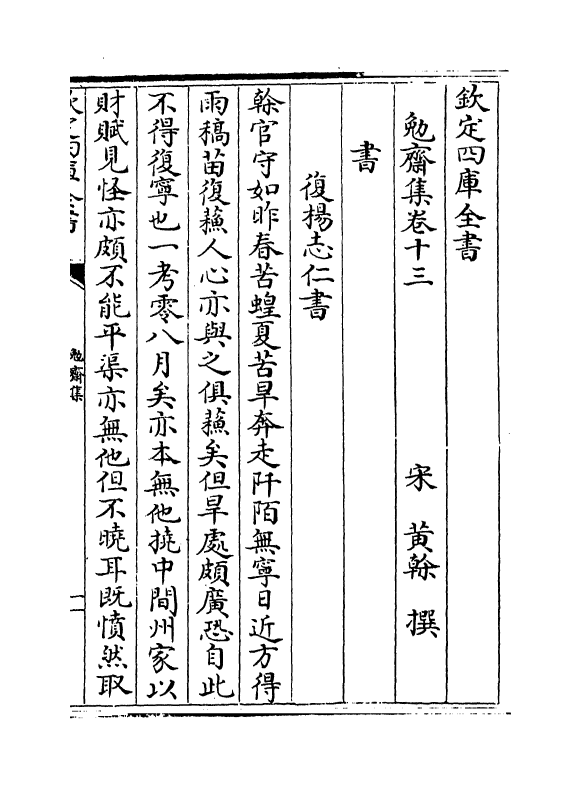 欽定四庫全書
勉齋集卷十三
宋 黃榦 撰
書
復楊志仁書
榦官守如昨春苦蝗夏苦旱奔走阡陌無寧日近方得
雨稿苗復蘓人心亦與之俱蘓矣但旱處頗廣恐自此
不得復寧也一考零八月矣亦本無他撓中間州家以
財賦見怪亦頗不能平渠亦無他但不曉耳既憤然取
勉齋集
一